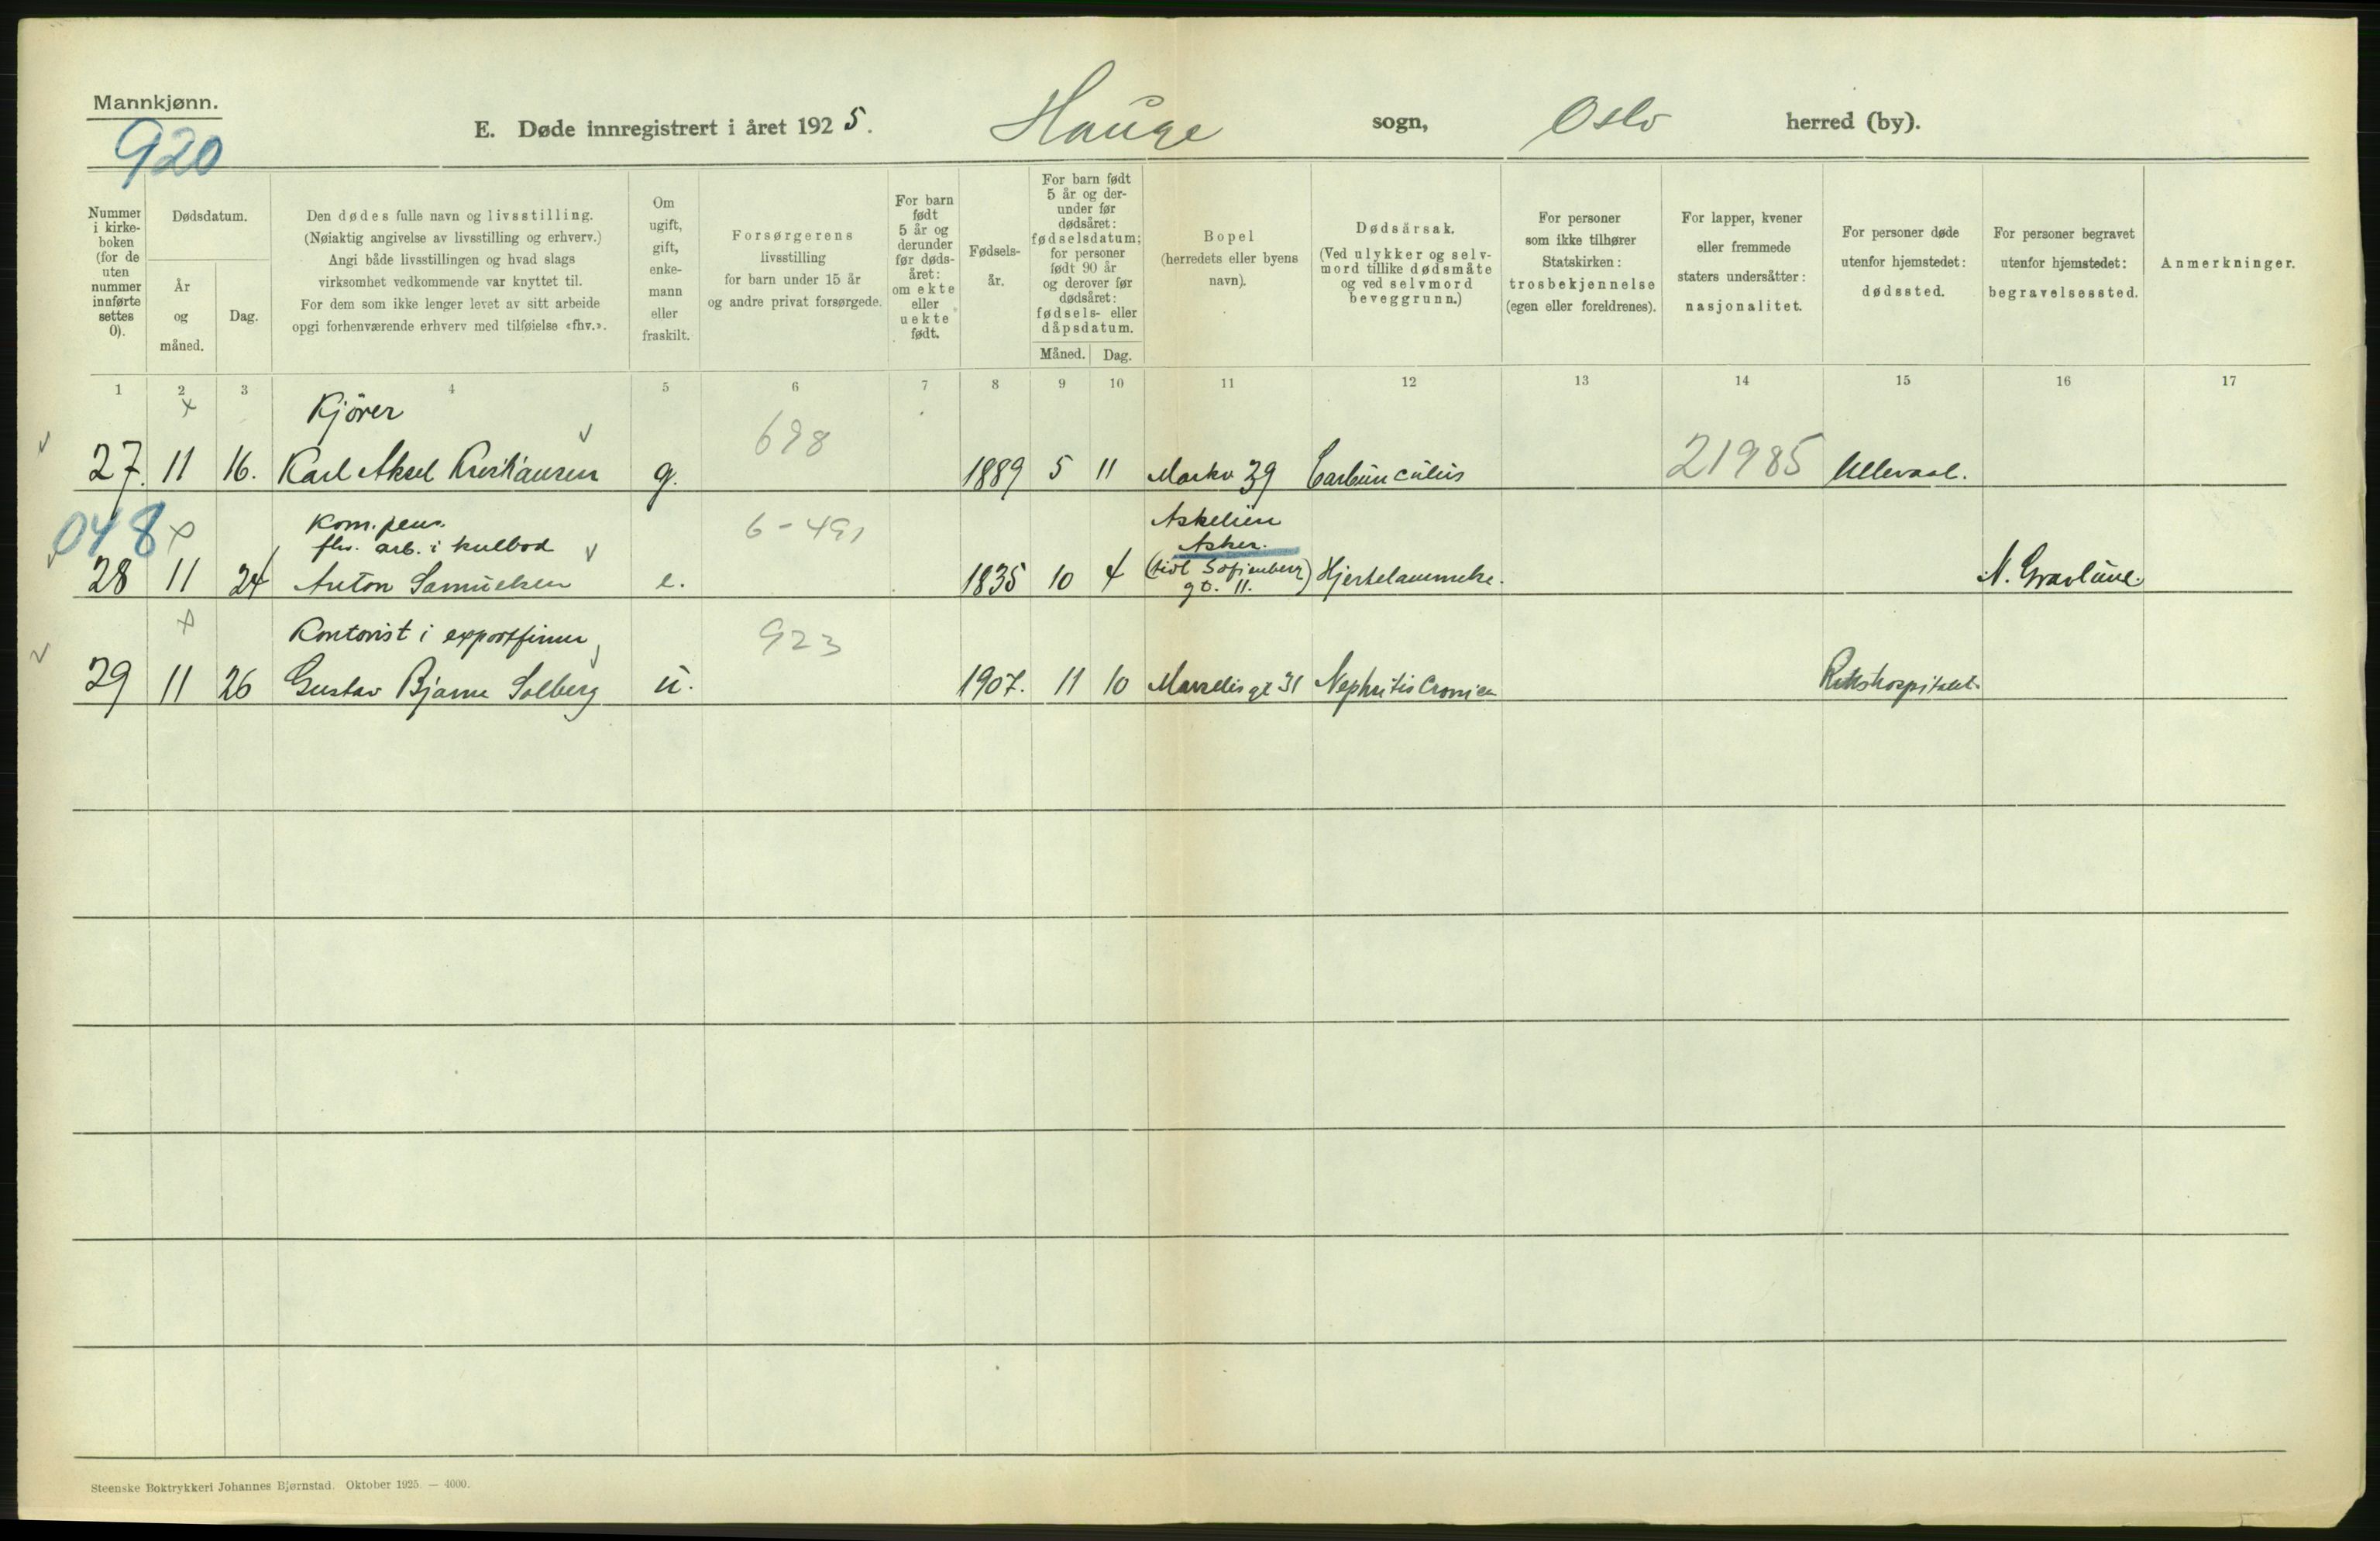 Mannkjønn.
920
E. Døde innregistrert i året 1925. Hauge sogn, Oslo herred (by).
Nummer i kirke-boken (for de uten nummer innførte settes 0).
Dødsdatum.
År og måned.
Dag.
Den dødes fulle navn og livsstilling.
(Nøiaktig angivelse av livsstilling og erhverv.)
Angi både livsstillingen og hvad slags
virksomhet vedkommende var knyttet til.
For dem som ikke lenger levet av sitt arbeide
opgi forhenværende erhverv med tilføielse «fhv.».
Om ugift, gift, enke-mann eller fraskilt.
Forsørgerens
livsstilling
for barn under 15 år
og andre privat forsørgede.
For barn født 5 år og derunder før døds-året: om ekte eller uekte født.
Fødsels-år.
For barn født 5 år og der-under før dødsåret: fødselsdatum; for personer født 90 år og derover før dødsåret: fødsels- eller dåpsdatum.
Måned. Dag.
Bopel
(herredets eller byens
navn).
Dødsårsak.
(Ved ulykker og selv-
mord tillike dødsmåte
og ved selvmord
beveggrunn.)
For personer
som ikke tilhører
Statskirken:
trosbekjennelse
(egen eller foreldrenes).
For lapper, kvener
eller fremmede
staters undersåtter:
nasjonalitet.
For personer døde
utenfor hjemstedet:
dødssted.
For personer begravet
utenfor hjemstedet:
begravelsessted.
Anmerkninger.
1 2 3 4 5 6 7 8 9 10 11 12 13 14 15 16 17
Kjörer
698
27. 11 16. Karl Aksel Kristiansen g. 1889 5 11 Markv 39 Carbunculus 21985 Ullevaal.
048
Kom. pens.
fhv. arb. i kulbod
6-491
Askelien
Asker.
28 11 24 Anton Samuelsen e. 1835 10 4 (tidl Sofienberg gt. 11.) Hjertelammelse. N. Gravlund.
Kontorist i exportfirma
923
29 11 26 Gustav Bjarne Solberg u. 1907. 11 10 Marselis gt 31 Nephritis Cronica Rikshospitalet.
Steenske Boktrykkeri Johannes Bjørnstad. Oktober 1925. — 4000.